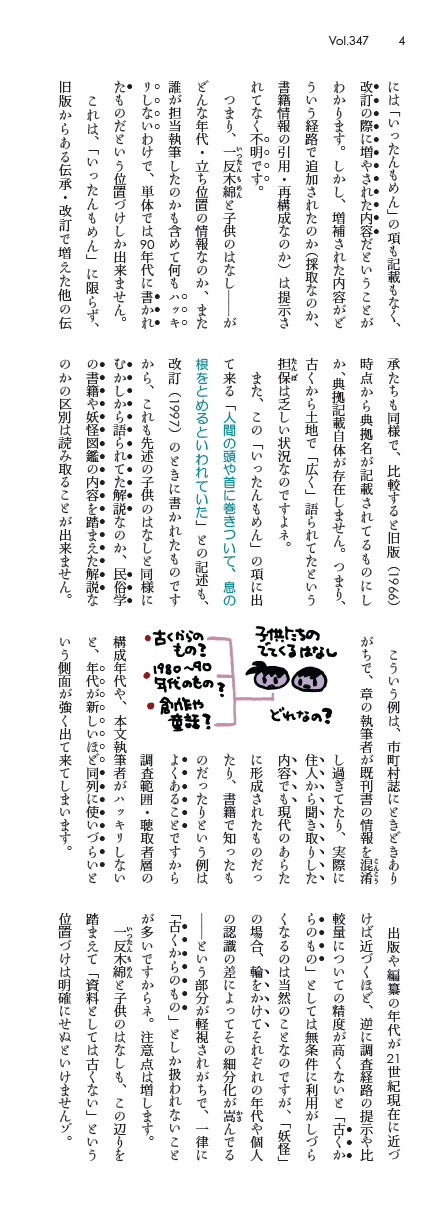 Vol.347 4
には「いったんもめん」の項も記載もなく、
改訂の際に増やされた内容だということが
わかります。しかし、増補された内容がど
ういう経路で追加されたのか（採取なのか、
書籍情報の引用・再構成なのか）は提示さ
れてなく不明です。
つまり、一反木綿と子供のはなし――が
どんな年代・立ち位置の情報なのか、また
誰が担当執筆したのかも含めて何もハッキ
リしないわけで、単体では90年代に書かれ
たものだという位置づけしか出来ません。
これは、「いったんもめん」に限らず、
旧版からある伝承・改訂で増えた他の伝
承たちも同様で、比較すると旧版（1966）
時点から典拠名が記載されてるものにし
か、典拠記載自体が存在しません。つまり、
古くから土地で「広く」語られてたという
担保は乏しい状況なのですよネ。
また、この「いったんもめん」の項に出
て来る「人間の頭や首に巻きついて、息の
根をとめるといわれていた」との記述も、
改訂（1997）のときに書かれたものです
から、これも先述の子供のはなしと同様に
むかしから語られてた解説なのか、民俗学
の書籍や妖怪図鑑の内容を踏まえた解説な
のかの区別は読み取ることが出来ません。
こういう例は、市町村誌にときどきあり
がちで、章の執筆者が既刊書の情報を混淆
し過ぎてたり、実際に
住人から聞き取りした
内容でも現代のあらた
に形成されたものだっ
たり、書籍で知ったも
のだったりという例は
よくあることですから
調査範囲・聴取者層の
構成年代や、本文執筆者がハッキリしない
と、年代が新しいほど同列に使いづらいと
いう側面が強く出て来てしまいます。
子供たちの
でてくるはなし
どれなの？
古くからの
もの？
1980〜90
年代のもの？
創作や
童話？
出版や編纂の年代が21世紀現在に近づ
けば近づくほど、逆に調査経路の提示や比
較量についての精度が高くないと「古くか
らのもの」としては無条件に利用がしづら
くなるのは当然のことなのですが、「妖怪」
の場合、輪をかけてそれぞれの年代や個人
の認識の差によってその細分化が嵩んでる
――という部分が軽視されがちで、一律に
「古くからのもの」としか扱われないこと
が多いですからネ。注意点は増します。
一反木綿と子供のはなしも、この辺りを
踏まえて「資料としては古くない」という
位置づけは明確にせぬといけませんゾ。